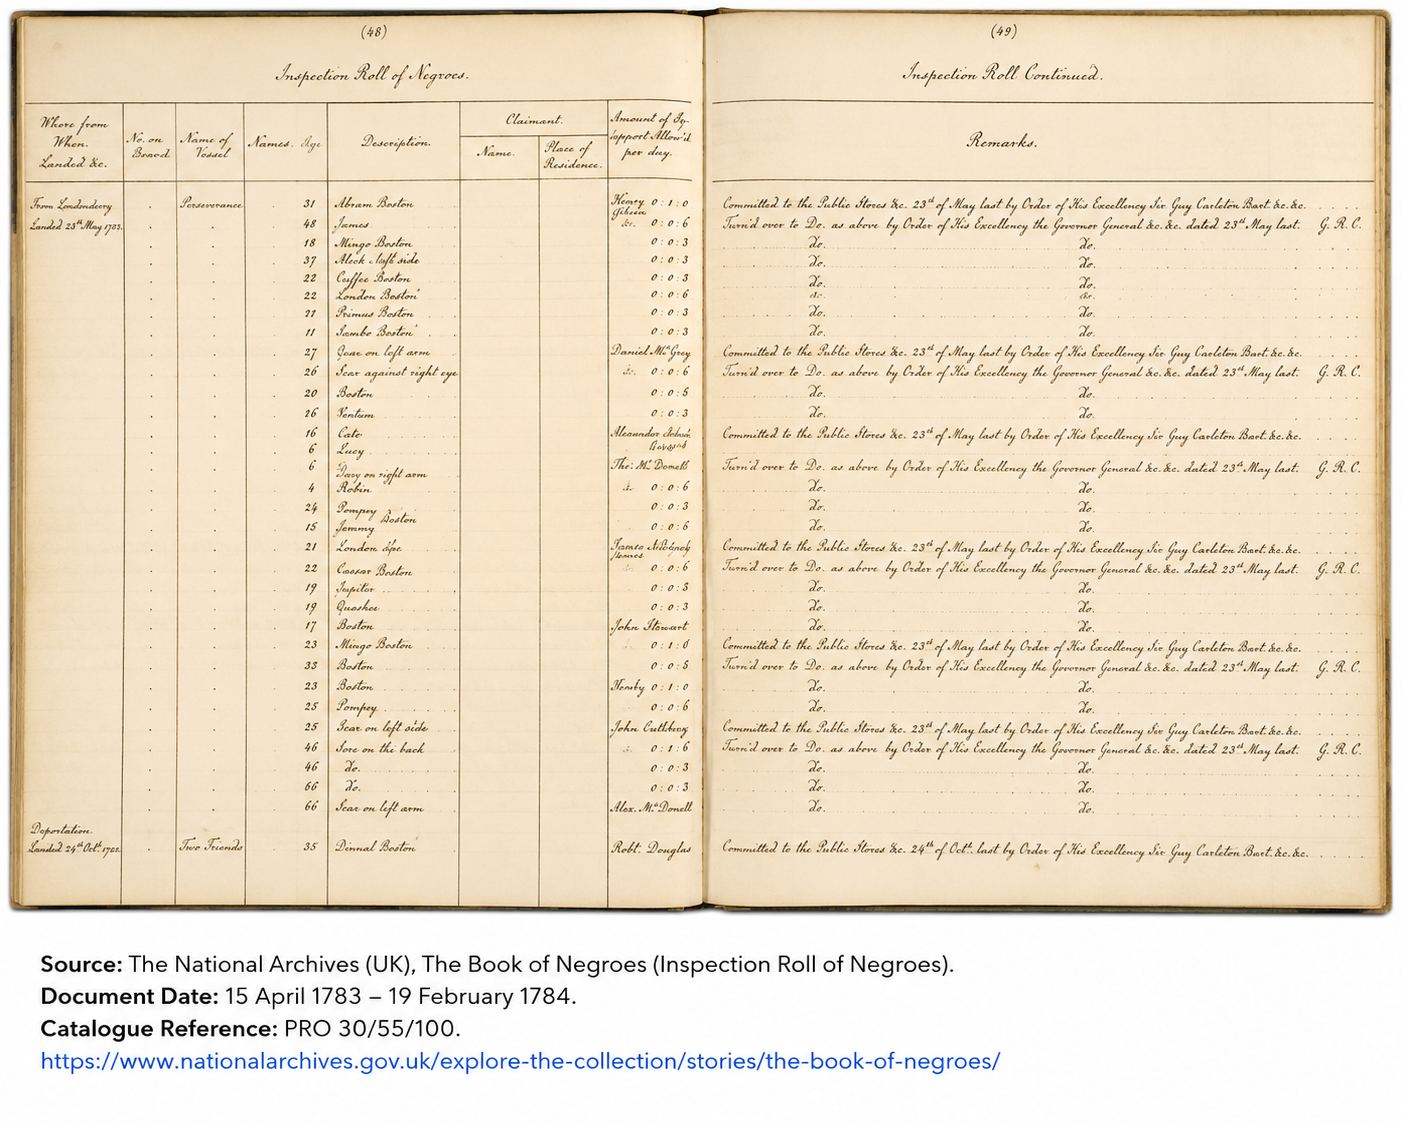 (48)
Inspection Roll of Negroes.
Where from When. Landed &c.
No. on Board
Name of Vessel
Names.
Age
Description.
Claimant.
Name.
Place of Residence.
Amount of per day.
From Londonderry Perseverance 31 Abram Boston Henry 0:1:0
Landed 23th May 1783. 48 James &c. 0:0:6
18 Mingo Boston 0:0:3
37 Aleck left side 0:0:3
22 Cuffee Boston 0:0:3
22 London Boston 0:0:6
21 Primus Boston 0:0:3
11 Sambo Boston 0:0:3
27 Scar on left arm Daniel Mc Grey
26 Scar against right eye 0:0:6
20 Boston 0:0:5
26 Ventum 0:0:3
16 Cato
6 Lucy
6 on right arm Tho: Mc Donell
4 Robin 0:0:6
24 Pompey Boston 0:0:3
15 Jemmy 0:0:6
21 London James
22 Caesar Boston 0:0:6
19 Jupitor 0:0:5
19 Quashee 0:0:3
17 Boston John Stewart
23 Mingo Boston 0:1:6
33 Boston 0:0:5
23 Boston 0:1:0
25 Pompey 0:0:6
25 Scar on left side John
46 Sore on the back 0:1:6
46 do. 0:0:3
66 do. 0:0:3
66 Scar on left arm Alex. Mc Donell
Deportation.
Landed 24th Octr. Two Friends 35 Dinnal Boston Robt. Douglas
(49)
Inspection Roll Continued.
Remarks.
Committed to the Public Stores &c. 23rd of May last by Order of His Excellency Sir Guy Carleton Bart. &c. &c.
Turn'd over to Do. as above by Order of His Excellency the Governor General &c. &c. dated 23rd May last. G. R. C.
Do. Do.
Do. Do.
Do. Do.
do. do.
Do. Do.
Do. Do.
Committed to the Public Stores &c. 23rd of May last by Order of His Excellency Sir Guy Carleton Bart. &c. &c.
Turn'd over to Do. as above by Order of His Excellency the Governor General &c. &c. dated 23rd May last. G. R. C.
Do. Do.
Do. Do.
Committed to the Public Stores &c. 23rd of May last by Order of His Excellency Sir Guy Carleton Bart. &c. &c.
Turn'd over to Do. as above by Order of His Excellency the Governor General &c. &c. dated 23rd May last. G. R. C.
Do. Do.
Do. Do.
Do. Do.
Committed to the Public Stores &c. 23rd of May last by Order of His Excellency Sir Guy Carleton Bart. &c. &c.
Turn'd over to Do. as above by Order of His Excellency the Governor General &c. &c. dated 23rd May last. G. R. C.
Do. Do.
Do. Do.
Do. Do.
Committed to the Public Stores &c. 23rd of May last by Order of His Excellency Sir Guy Carleton Bart. &c. &c.
Turn'd over to Do. as above by Order of His Excellency the Governor General &c. &c. dated 23rd May last. G. R. C.
Do. Do.
Do. Do.
Committed to the Public Stores &c. 23rd of May last by Order of His Excellency Sir Guy Carleton Bart. &c. &c.
Turn'd over to Do. as above by Order of His Excellency the Governor General &c. &c. dated 23rd May last. G. R. C.
Do. Do.
Do. Do.
Do. Do.
Committed to the Public Stores &c. 24th of Octr. last by Order of His Excellency Sir Guy Carleton Bart. &c. &c.
Source: The National Archives (UK), The Book of Negroes (Inspection Roll of Negroes).
Document Date: 15 April 1783 – 19 February 1784.
Catalogue Reference: PRO 30/55/100.
https://www.nationalarchives.gov.uk/explore-the-collection/stories/the-book-of-negroes/